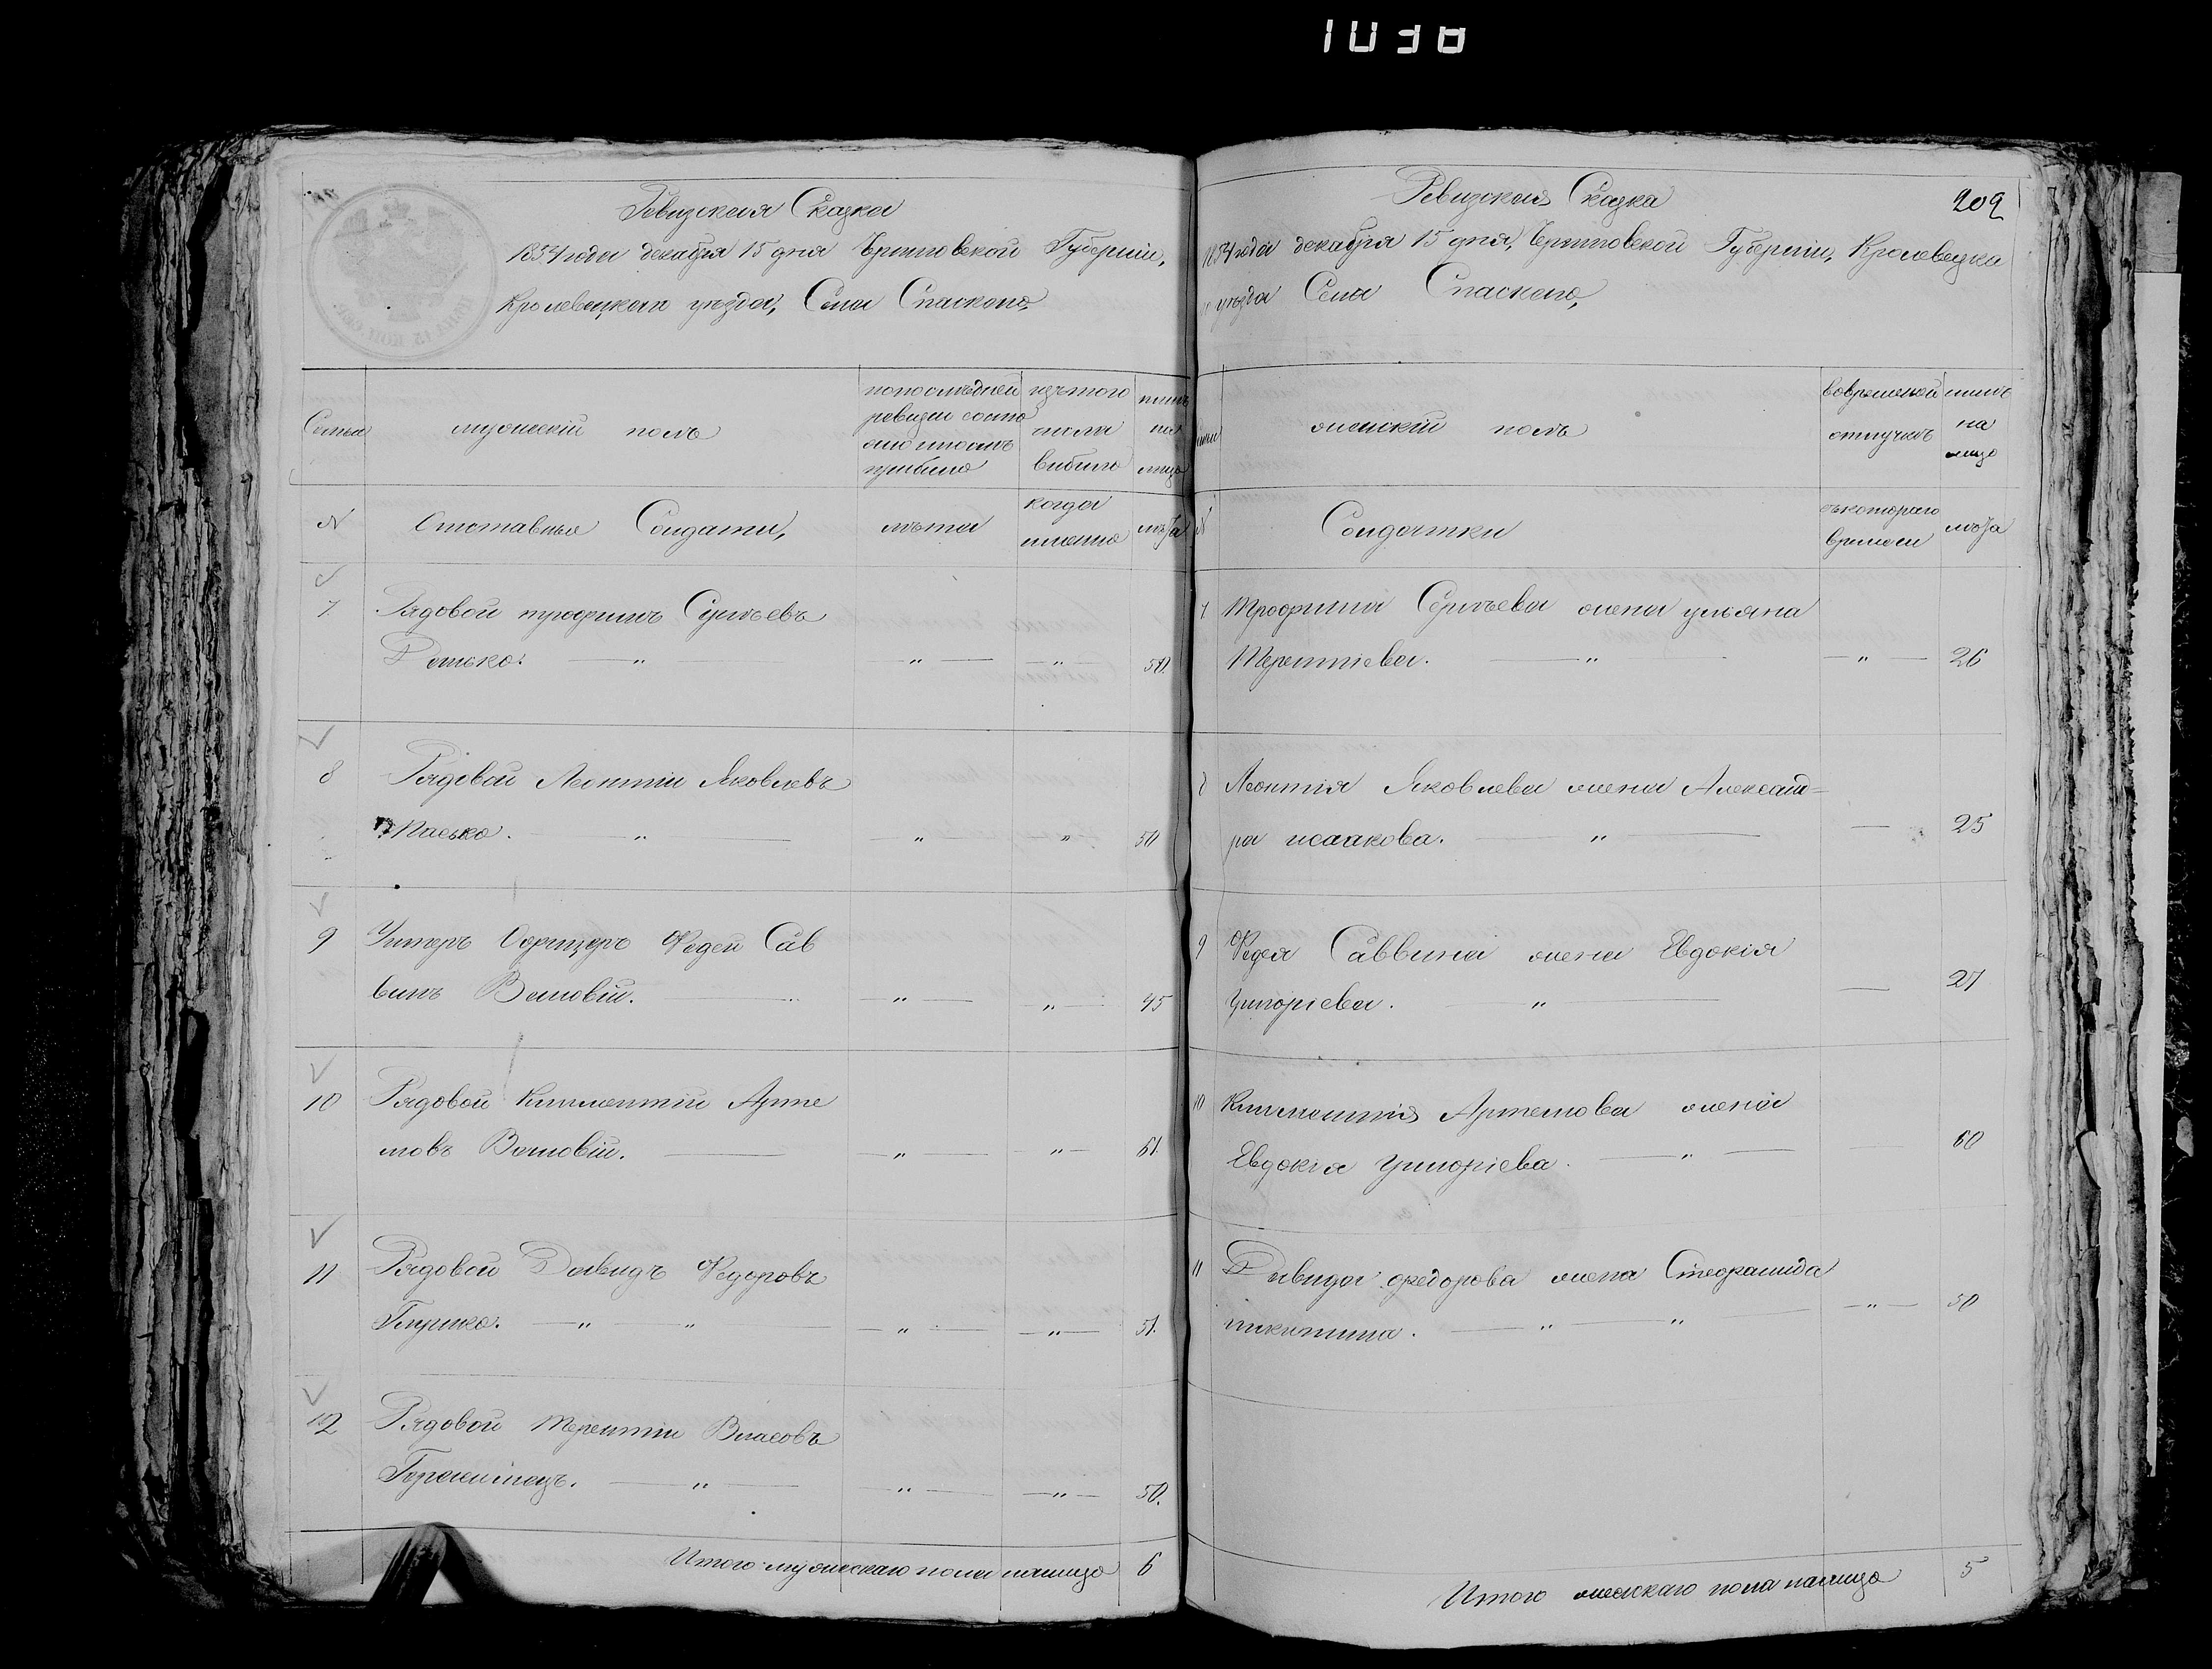 1038
Ревизская Сказка
1854 года декабря 15 дня Черниговской Губерніи,
Кролевецкаго уезда, Села Спаскаго,
Семьи
мужескій полъ
попоследней
ревизіи состо
яло и после
прибыло
изътого
числа
выбыло
ныне
на
лицо
N
Отставные Солдати,
лета
когда
именно
лета
7
Рядовой трофимъ Сергеевъ
Ретько. — „ „ — „ — 50.
8
Рядовой Леонтій Яковлевъ
Пасько. — „ — „ — „ 50
9
Унтеръ Офицеръ Федей Сав
винъ Вотовій. — „ — „ — 45
10
Рядовой Климентій Арте
мовъ Вотовій. — „ — „ — 61.
11
Рядовой Давидъ Федоровъ
Глушко. — „ „ — „ — „ — 51.
12
Рядовой Терентій Власовъ
— „ — „ — „ — 50.
Итого мужескаго пола налицо 6
Ревизская Сказка
202
1854 года декабря 15 дня, Черниговской Губерніи, Кролевецка
го уезда Села Спаскаго,
Семьи
женскій полъ
вовременной
отлучке
ныне
на
лицо
N
Солдатки
скотораго
времени
лета
7 Трофима Сергеева жена ульяна
Терентіева. — „ — „ — 26
8 Леонтія Яковлева жена Александ=
ра исаакова. — „ — — 25
9 Федея Саввина жена Евдокія
Григоріева. „ — 27
10 Климентія Артемова жена
Евдокія Григоріева. — „ — 60
11 Давида федорова жена Стефанида
никитина. — „ — „ — „ — 50
Итого женскаго пола налицо 5